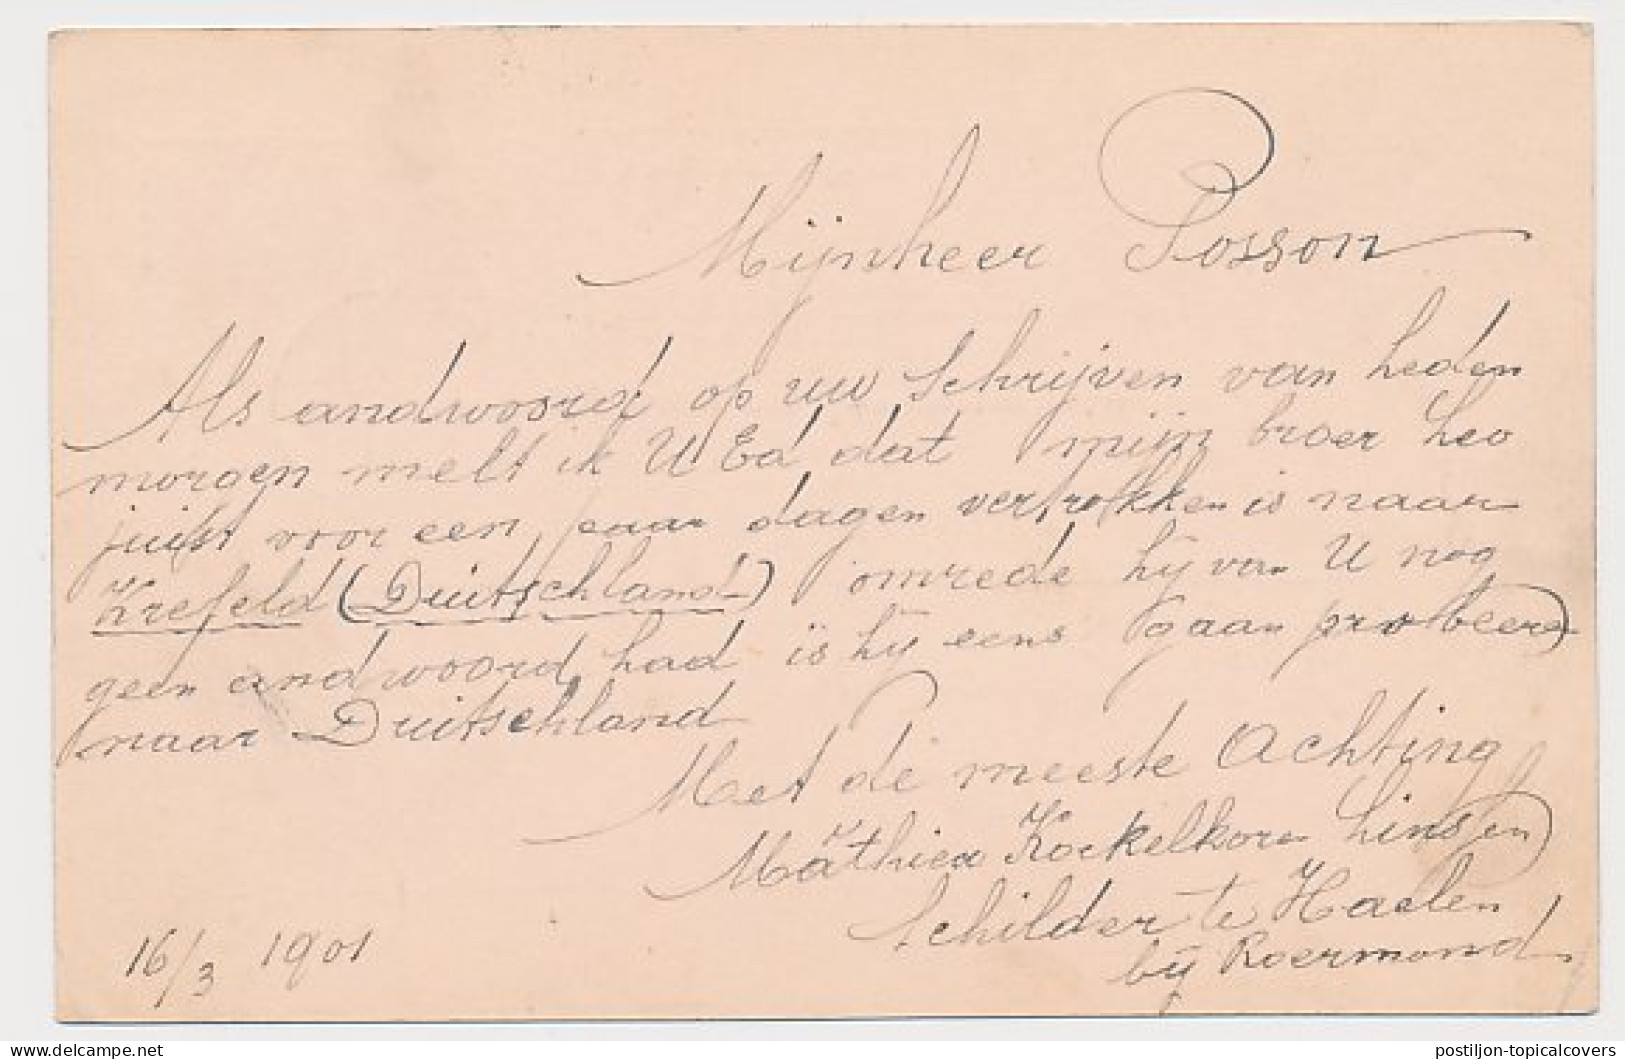 Mijnheer Posson
Als andwoord op uw schrijven van heden
morgen melt ik UEd dat mijn broer Leo
juist voor een paar dagen vertrokken is naar
Krefeld (Duitschland) omrede hij van U nog
geen andwoord had is hij eens gaan probeeren
naar Duitschland
Met de meeste Achting
Mathieu Kockelkorn Linssen
Schilder te Haelen
bij Roermond
16/3 1901
postiljon-topicalcovers